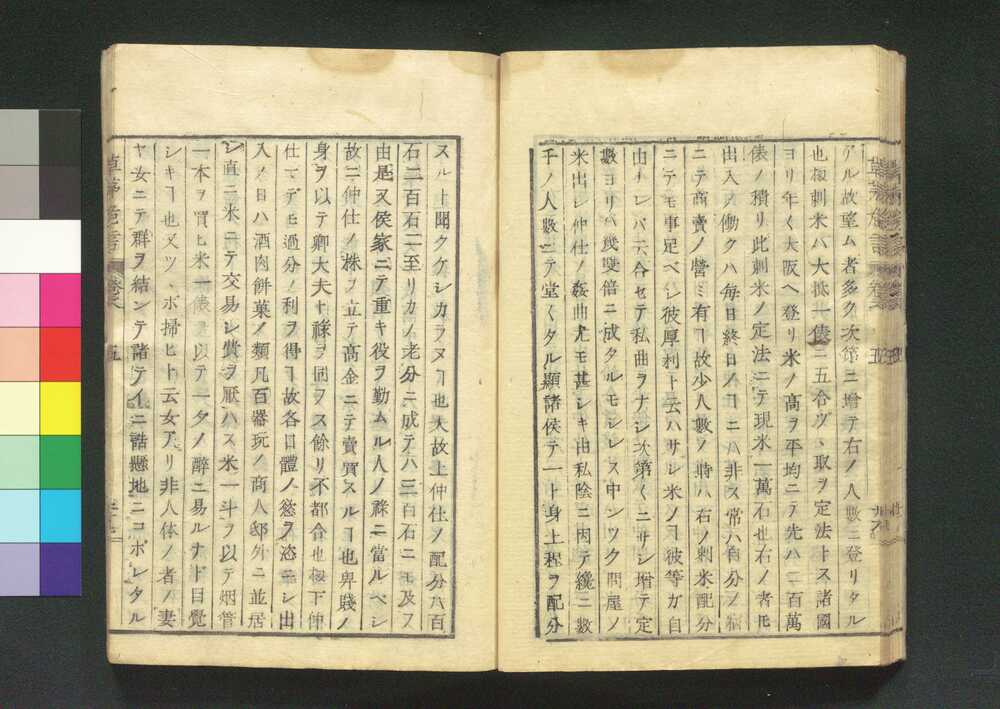 アル故望ム者多ク次第ニ増テ右ノ人数ニ登リタル
也扨刺米ハ大抵一俵ニ五合ヅヽ取ヲ定法トス諸國
ヨリ年々大阪ヘ登リ米ノ高ヲ平均ニテ先ハ二百萬
俵ノ積リ此刺米ノ定法ニテ現米一萬石也右ノ者𪜈
出入ノ働クハ毎日終日ノヿニハ非ス常ハ自分ノ
ニテ商賣ノ營ミ有ヿ故少人數ノ時ハ右ノ刺米配分
ニテモ事足ベシ彼厚利ト云ハサレ米ノヿ彼等ガ自
由ナレバ云合セテ私曲ヲナシ次第々ニサシ増テ定
數ヨリハ幾雙倍ニ成タルモシレス中ンツク問屋ノ
米出シ仲仕ノ姦曲尤モ甚シキ由私陰ニ因テ纔ニ數
千ノ人數ニテ堂々タル顯諸侯テ一ト身上程ヲ配分
スル上聞クケシカラヌヿ也夫故上仲仕ノ配分八百
石二百石ニ至リカノ老分ニ成テハ三百石ニモ及フ
由是又侯家ニテ重キ役ヲ勤ムル人ノ祿ニ當ルベシ
故ニ仲仕ノ株ヲ立テ高金ニテ賣買スルヿ也卑賤ノ
身ヲ以テ卿大夫ト祿ヲ同フス餘リ不都合也極下仲
仕マデモ過分ノ利ヲ得ヿ故各口體ノ慾ヲ恣ニシ出
入ノ日ハ酒肉餅菓ノ類凡百器玩ノ商人邸外ニ並居
シ直ニ米ニテ交易シ費ヲ厭ハス米一斗ヲ以テ烟管
一本ヲ買ヒ米一俵ヲ以テ一夕ノ醉ニ易ルナド目覺
シキヿ也又ツヽボ掃ヒト云女アリ非人体ノ者ノ妻
ヤ女ニテ群ヲ結ンテ諸テイニ詰懸地ニコボレタル
草茅危言 卷之 五